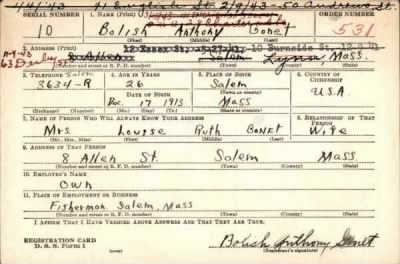 4/4/43 41 English St. 2/9/43 - 50 Andrews St.
SERIAL NUMBER 1. NAME (Print) ORDER NUMBER
10 Bolish Anthony Bonet 531
(First) (Middle) (Last)
2. ADDRESS (Print) 12 Essex St. 10 Burnside St.
11-9-43
63 Derby St. 8 Allen Salem Lynn Mass.
(Number and street or R. F. D. number) (Town) (County) (State)
3. TELEPHONE 4. AGE IN YEARS 5. PLACE OF BIRTH 6. COUNTRY OF CITIZENSHIP
Salem 26 Salem
3634-R DATE OF BIRTH (Town or county) U.S.A.
Dec. 17 1913 Mass
(Exchange) (Number) (Mo.) (Day) (Yr.) (State or country)
7. NAME OF PERSON WHO WILL ALWAYS KNOW YOUR ADDRESS 8. RELATIONSHIP OF THAT PERSON
Mrs Louise Ruth Bonet Wife
(Mr., Mrs., Miss) (First) (Middle) (Last)
9. ADDRESS OF THAT PERSON
8 Allen St. Salem Mass
(Number and street or R. F. D. number) (Town) (County) (State)
10. EMPLOYER'S NAME
Own
11. PLACE OF EMPLOYMENT OR BUSINESS
Fisherman Salem, Mass
(Number and street or R. F. D. number) (Town) (County) (State)
I AFFIRM THAT I HAVE VERIFIED ABOVE ANSWERS AND THAT THEY ARE TRUE.
REGISTRATION CARD
D. S. S. Form 1 Bolish Anthony Bonet
(Registrant's signature)